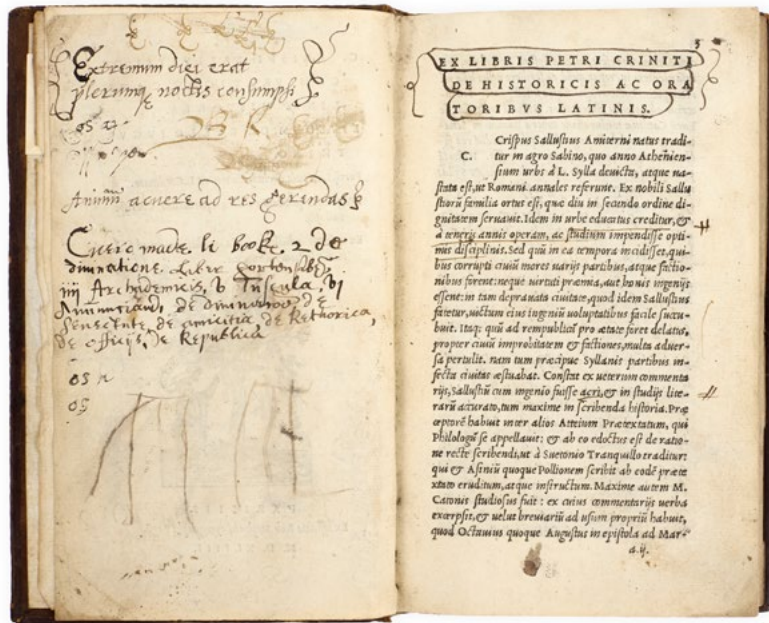 Extremum diei erat
plerumq noctis consumpsi
os
B R
Animũ acuere ad res gerendas
Cicero made li booke 2 de
divinatione. Libri hortensibꝫ
iiii Archademicis, v Tuscula, vi
de
Senectute, de amicitia de Rethorica,
de officijs, de Republica
os n
os
5
EX LIBRIS PETRI CRINITI
DE HISTORICIS AC ORA
TORIBVS LATINIS.
Crispus Sallustius Amiterni natus tradi-
C. tur in agro Sabino, quo anno Atheñien-
sium urbs à L. Sylla deuicta, atque ua-
stata est, ut Romani annales referunt. Ex nobili Sallu
stiorũ familia ortus est, quæ diu in secundo ordine di-
gnitatem seruauit. Idem in urbe educatus creditur, &
à teneris annis operam, ac studium impendisse opti-
mis disciplinis. Sed quũ in ea tempora incidisset, qui-
bus corrupti ciuiũ mores uarijs partibus, atque factio-
nibus forent: neque uirtuti præmia, aut bonis ingenijs
essent: in tam deprauata ciuitate, quod idem Sallustius
fatetur, uictum eius ingeniũ uoluptatibus facile succu-
buit. Itaq; quũ ad rempublicũ pro ætate foret delatus,
propter ciuiũ improbitatem & factiones, multa aduer-
sa pertulit. nam tum præcipue Syllanis partibus in-
fecta ciuitas æstuabat. Constat ex ueterum commenta
rijs, Sallustiũ cum ingenio fuisse acri, & in studijs lite-
rarũ accurato, tum maxime in scribenda historia. Præ
ceptorẽ habuit inter alios Atteium Prætextatum, qui
Philologũ se appellauit: & ab eo edoctus est de ratio-
ne recte scribendi, ut à Suetonio Tranquillo traditur:
qui & Asiniũ quoque Pollionem scribit ab eodẽ præte
xtato eruditum, atque instructum. Maxime autem M.
Catonis studiosus fuit: ex cuius commentarijs uerba
excerpsit, & uelut breuiariũ ad usum propriũ habuit,
quod Octauius quoque Augustus in epistola ad Mar-
a.ij.